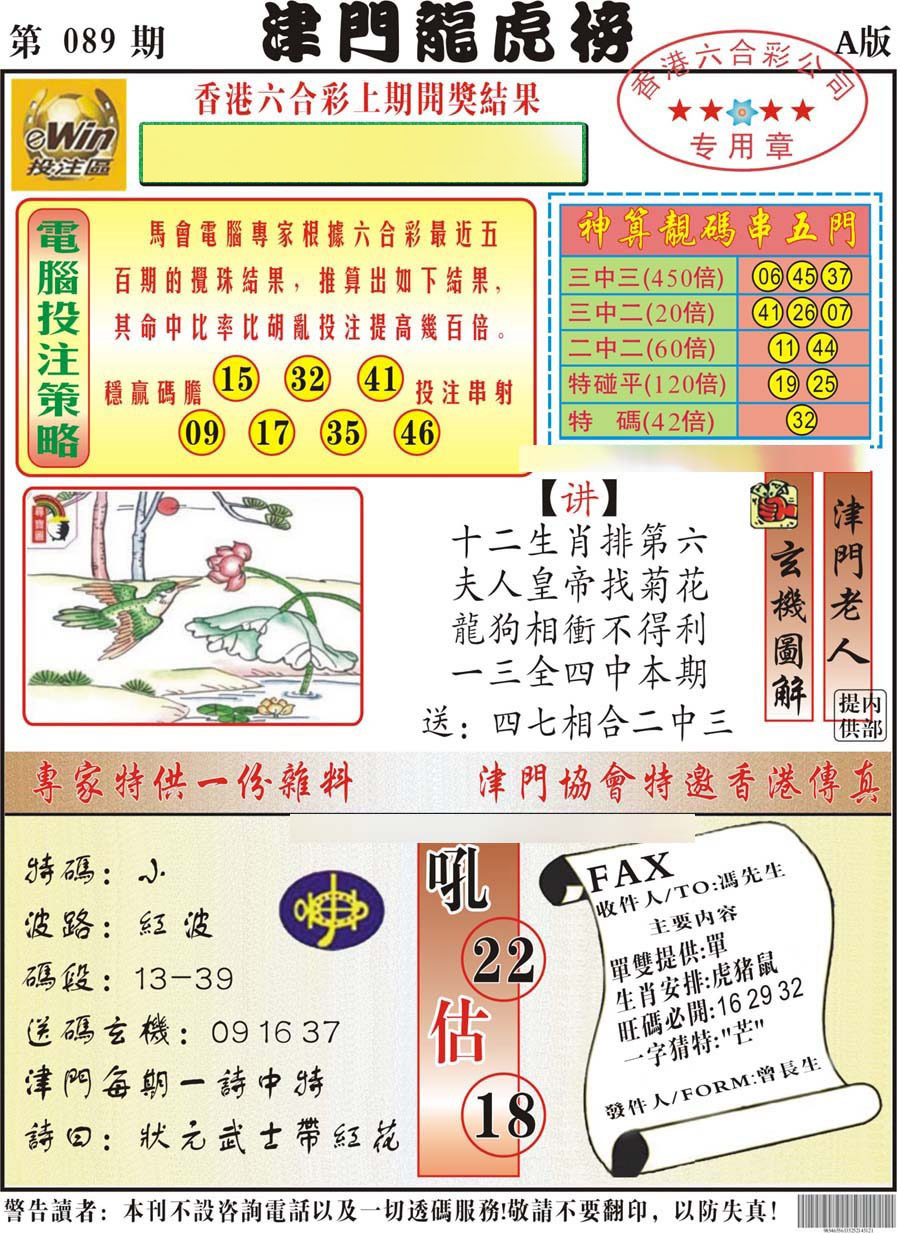 第 089 期
津門龍虎榜
A版
eWin
投注區
香港六合彩上期開獎結果
香港六合彩公司
专用章
電腦投注策略
馬會電腦專家根據六合彩最近五
百期的攪珠結果，推算出如下結果，
其命中比率比胡亂投注提高幾百倍。
穩贏碼膽 15 32 41 投注串射
09 17 35 46
神算靚碼串五門
三中三(450倍) 06 45 37
三中二(20倍) 41 26 07
二中二(60倍) 11 44
特碰平(120倍) 19 25
特 碼(42倍) 32
尋寶圖
【讲】
十二生肖排第六
夫人皇帝找菊花
龍狗相衝不得利
一三全四中本期
送：四七相合二中三
玄機圖解
津門老人
内部提供
專家特供一份雜料
津門協會特邀香港傳真
特碼：小
波路：紅波
碼段：13-39
送碼玄機：09 16 37
津門每期一詩中特
詩曰：狀元武士帶紅花
吼
22
估
18
FAX
收件人/TO:馮先生
主要内容
單雙提供:單
生肖安排:虎猪鼠
旺碼必開:16 29 32
一字猜特:"芒"
發件人/FORM:曾長生
警告讀者：本刊不設咨詢電話以及一切透碼服務!敬請不要翻印，以防失真！